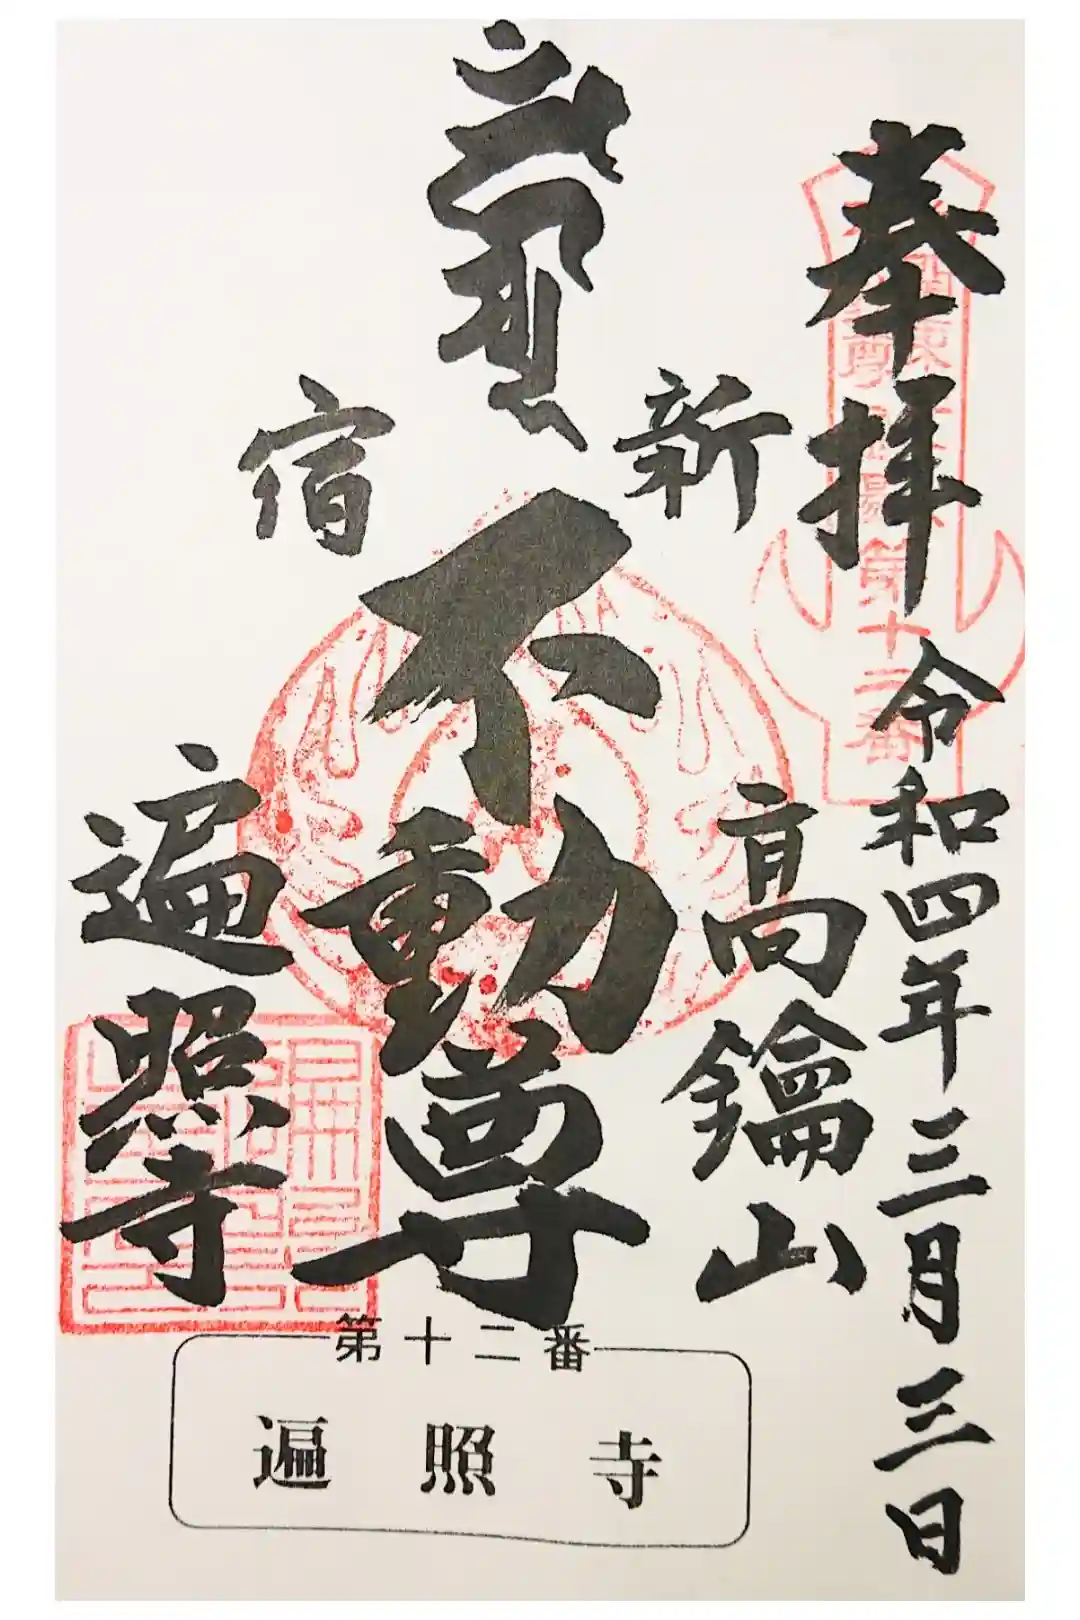 奉拝
令和四年三月三日
第十二番
新宿
高鑰山
不動尊
遍照寺
第十二番
遍照寺